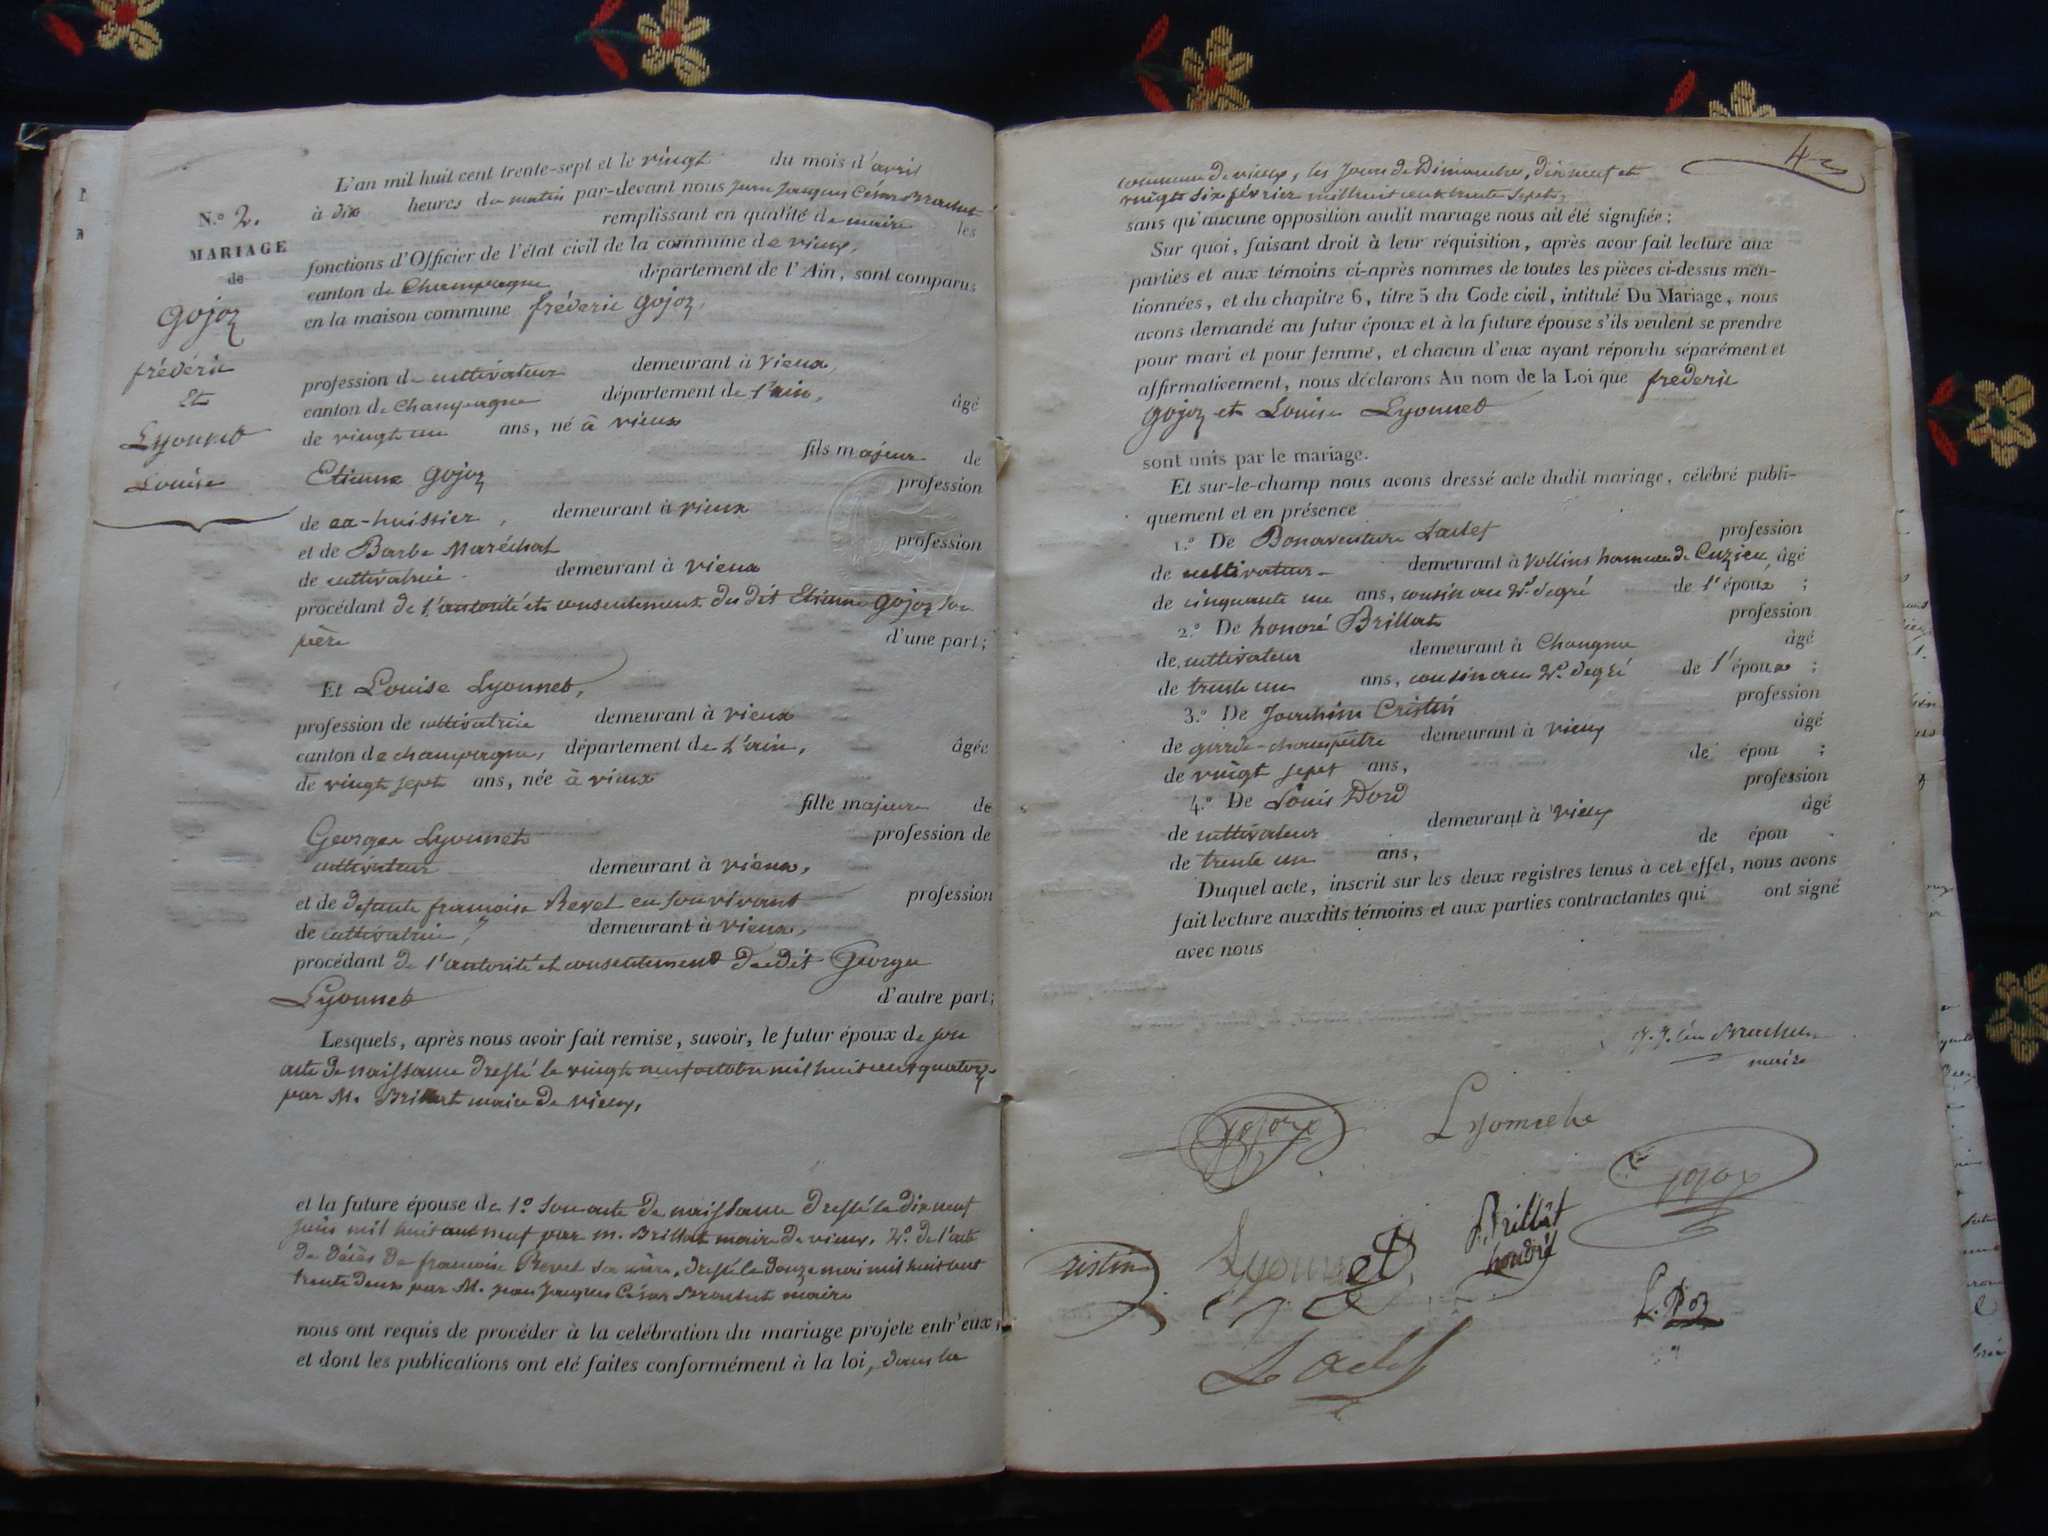 N.º 2.
MARIAGE
de
Gojoz
fréderic
Et
Lyonnet
Louise
L'an mil huit cent trente-sept et le vingt du mois d'avril
à dix heures du matin par-devant nous Jean Jacques César Brachet
remplissant en qualité de maire les
fonctions d'Officier de l'état civil de la commune de vieux,
canton de Champagne département de l'Ain, sont comparus
en la maison commune fréderic gojoz,
profession de cultivateur demeurant à Vieux,
canton de Champagne département de l'ain, âgé
de vingt un ans, né à vieux
fils majeur de
Etienne gojoz profession
de ex-huissier, demeurant à vieux
et de Barbe Maréchal profession
de cultivatrice demeurant à vieux
procédant de l'autorité et consentement du dit Etienne gojoz son
père d'une part;
Et Louise Lyonnet,
profession de cultivatrice demeurant à vieux
canton de champagne, département de l'ain, âgée
de vingt sept ans, née à vieux
fille majeure de
George Lyonnet profession de
cultivateur demeurant à vieux,
et de defunte françoise Revel en son vivant profession
de cultivatrice, demeurant à vieux,
procédant de l'autorité et consentement du dit George
Lyonnet d'autre part;
Lesquels, après nous avoir fait remise, savoir, le futur époux de son
acte de naissance dressé le vingt neuf octobre mil huit cent quatorze
par M. Brillat maire de vieux,
et la future épouse de 1º son acte de naissance dressé le dix neuf
juin mil huit cent neuf par m. Brillat maire de vieux. 2º de l'acte
de décès de francoise Revel sa mère, dressé le douze mai mil huit cent
trente deux par M. jean Jacques César Brachet maire
nous ont requis de procéder à la celébration du mariage projeté entr'eux,
et dont les publications ont été faites conformément à la loi, dans la
4
commune de vieux, les jours de Dimanches, dix neuf et
vingt six février mil huit cent trente sept,
sans qu'aucune opposition audit mariage nous ait été signifiée;
Sur quoi, faisant droit à leur réquisition, après avoir fait lecture aux
parties et aux témoins ci-après nommes de toutes les pièces ci-dessus men-
tionnées, et du chapitre 6, titre 5 du Code civil, intitulé Du Mariage, nous
avons demandé au futur époux et à la future épouse s'ils veulent se prendre
pour mari et pour femme, et chacun d'eux ayant répondu séparément et
affirmativement, nous déclarons Au nom de la Loi que fréderic
gojoz et Louise Lyonnet
sont unis par le mariage.
Et sur-le-champ nous avons dressé acte dudit mariage, célébré publi-
quement et en présence
1.º De Bonaventure Ladet profession
de cultivateur demeurant à Vollins hameau de Cuzieu, âgé
de cinquante un ans, cousin au 2ᵈ degré de l'époux ;
2.º De honoré Brillat profession
de cultivateur demeurant à Changne âgé
de trente un ans, cousin au 2ᵈ degré de l'époux ;
3.º De Joachim Cristin profession
de garde-champêtre demeurant à vieux âgé
de vingt sept ans, de épou ;
4.º De Louis Dord profession
de cultivateur demeurant à vieux âgé
de trente un ans, de épou .
Duquel acte, inscrit sur les deux registres tenus à cet effet, nous avons
fait lecture auxdits témoins et aux parties contractantes qui ont signé
avec nous
maire
gojoz
gojoz
Brillat
honoré
Lyonnet
Cristin
Ladet